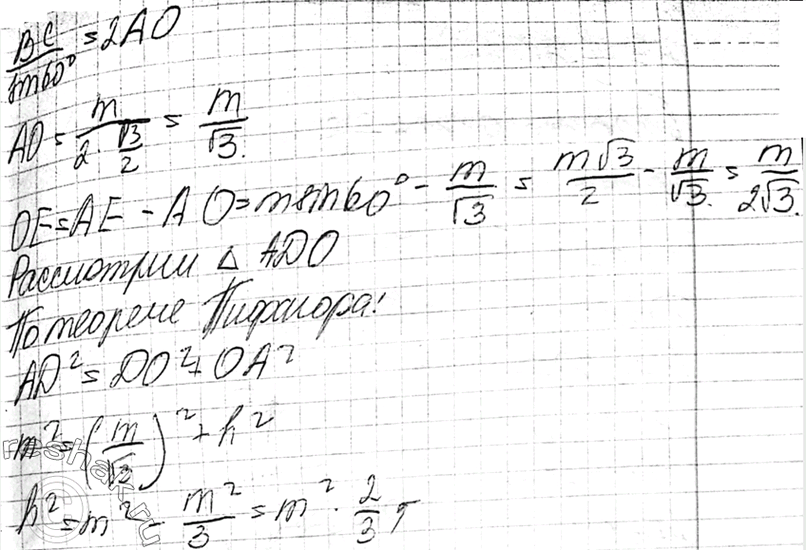 BC/sin60° = 2AO
AO = m/(2·√3/2) = m/√3.
OE = AE - AO = m sin60° - m/√3 = m√3/2 - m/√3. = m/2√3.
Рассмотрим △ ADO
По теореме Пифагора:
AD² = DO² + OA²
m² = (m/√3)² + h²
h² = m² - m²/3 = m² · 2/3
reshak.ru